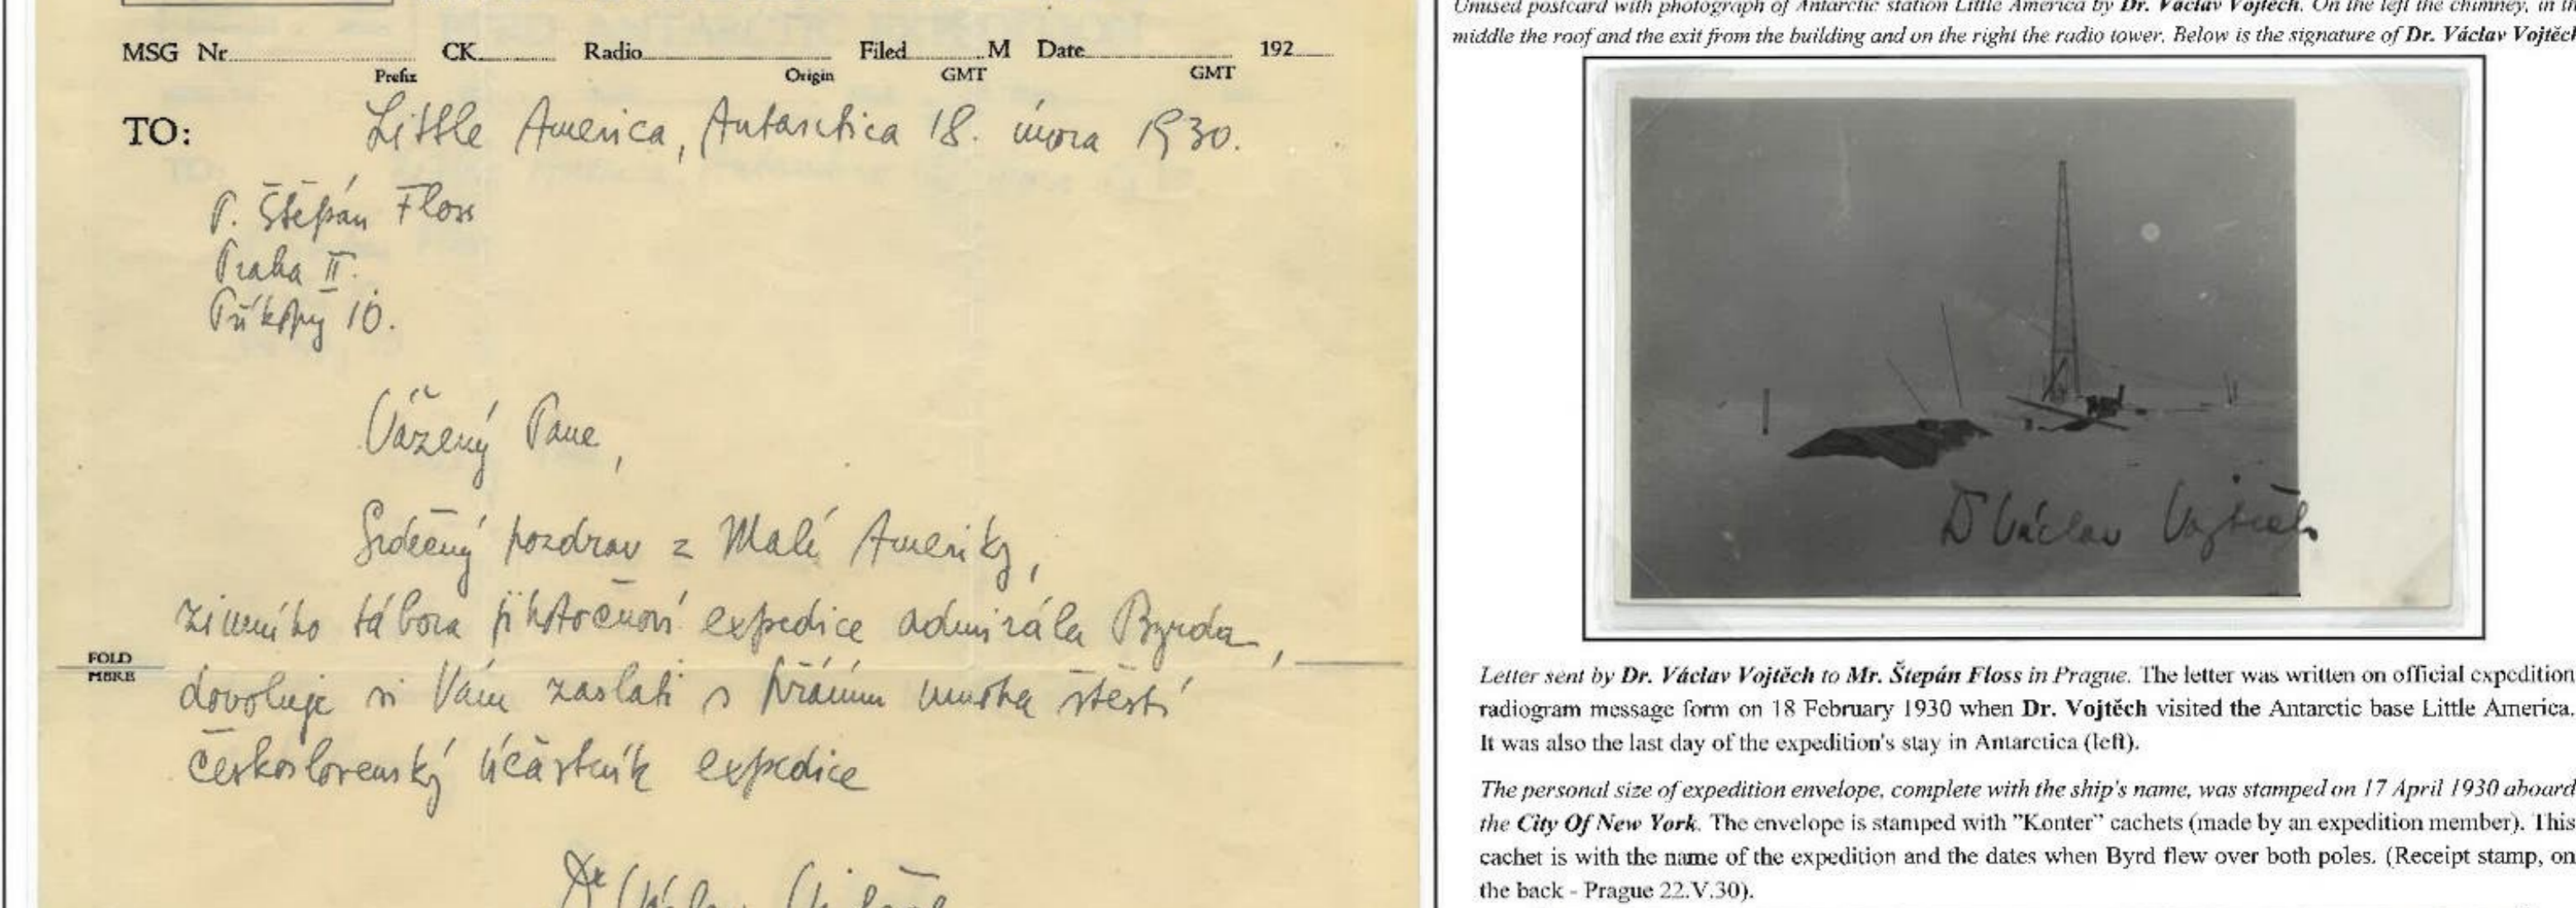 MSG Nr. CK. Radio Filed M Date 192
Prefix Origin GMT GMT
TO: Little America, Antarctica 18. února 1930.
P. Štěpán Floss
Praha II.
Příkopy 10.
Vážený Pane,
Srdečný pozdrav z Malé Ameriky,
zimního tábora jihotočnové expedice admirála Byrda,
FOLD
HERE
dovoluje si Vám zaslati s přáním mnoha štěstí
československý účastník expedice
Dr Václav Vojtěch
Unused postcard with photograph of Antarctic station Little America by Dr. Václav Vojtěch. On the left the chimney, in
middle the roof and the exit from the building and on the right the radio tower. Below is the signature of Dr. Václav Vojtěch
Dr Václav Vojtěch
Letter sent by Dr. Václav Vojtěch to Mr. Štepán Floss in Prague. The letter was written on official expedition
radiogram message form on 18 February 1930 when Dr. Vojtěch visited the Antarctic base Little America.
It was also the last day of the expedition's stay in Antarctica (left).
The personal size of expedition envelope, complete with the ship's name, was stamped on 17 April 1930 aboard
the City Of New York. The envelope is stamped with "Konter" cachets (made by an expedition member). This
cachet is with the name of the expedition and the dates when Byrd flew over both poles. (Receipt stamp, on
the back - Prague 22.V.30).